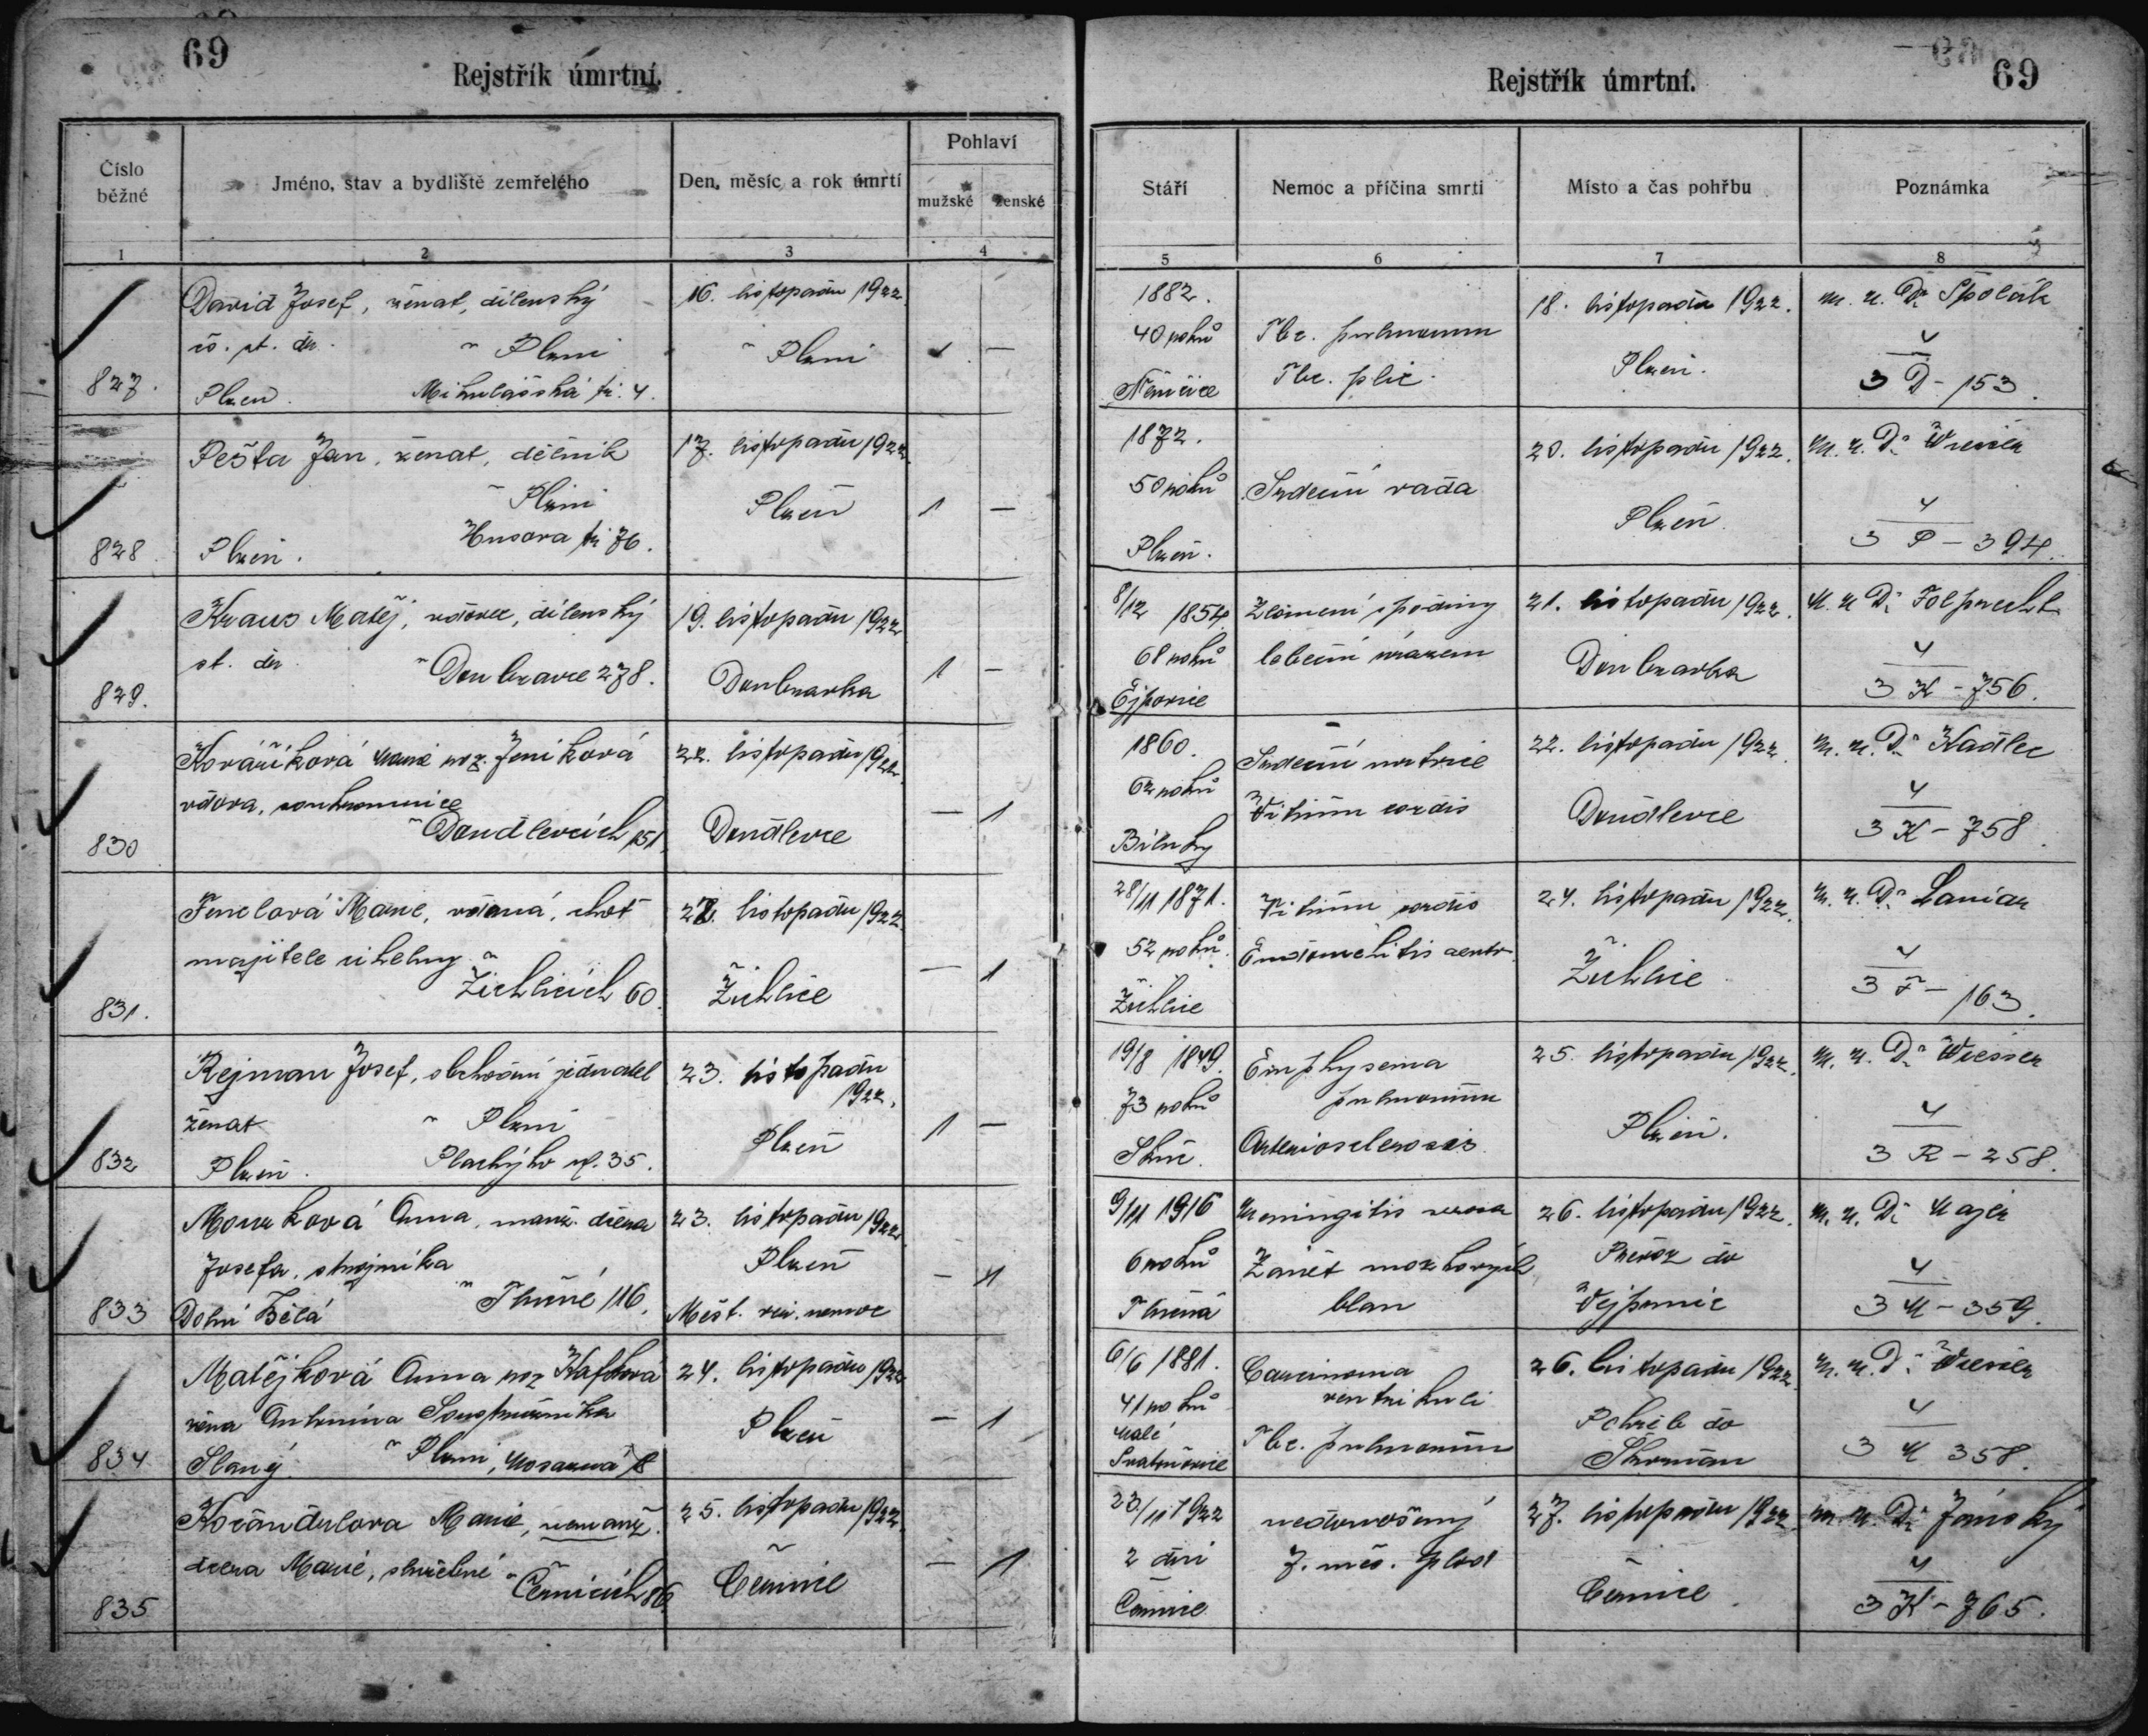 69
Rejstřík úmrtní.
Číslo běžné
Jméno, stav a bydliště zemřelého
Den, měsíc a rok úmrtí
Pohlaví
mužské
ženské
1
2
3
4
827.
David Josef, ženat, dílenský
v Plzni
Plzeň. Mikulášská tř. 4.
16. listopadu 1922
v Plzni
828
Pešta Jan, ženat, dělník
v Plzni
Husova tř. 76.
Plzeň.
17. listopadu 1922.
Plzeň
1 —
829.
Kraus Matěj, vdovec, dílenský
v Doubravce 278.
19. listopadu 1922
Doubravka
1 —
830
Kovaříková Marie roz. Jeníková
vdova, soukromnice
v Doudlevcích 151
22. listopadu 1922
Doudlevce
— 1
831.
Fenclová Marie, vdaná, choť
majitele cihelny
v Žichlicích 60.
22. listopadu 1922
Žichlice
— 1
832
Rejman Josef, obchodní jednatel
ženat v Plzni
Plzeň. Plachýho ul. 35.
23. listopadu
1922.
Plzeň
1 —
833
Mourková Anna, manž. dcera
Josefa, strojníka
Dolní Bělá v Tlučné 116.
23. listopadu 1922
Plzeň
Měst. nemoc
— 1
834
Matějková Anna roz Kafková
žena Antonína Soustružníka
Slaný. v Plzni,
24. listopadu 1922
Plzeň
— 1
835
Kočandulova Marie, nemanž.
dcera Marie, služebné
v Černicích 86.
25. listopadu 1922.
Černice
— 1
69
Rejstřík úmrtní.
Stáří
Nemoc a příčina smrti
Místo a čas pohřbu
Poznámka
5
6
7
8
1882.
40 roků
Němčice
Tbc. pulmonum
Tbc. plic.
18. listopadu 1922.
Plzeň.
m. u. Dr Špolák
4
3 D - 153.
1872.
50 roků
Plzeň.
Srdeční vada
20. listopadu 1922.
Plzeň.
M. u. Dr Wiesner
4
3 P - 394.
8/12 1854.
68 roků
Ejpovice
Zlomení spodiny
lebeční úrazem
21. listopadu 1922.
Doubravka
M. u Dr Folprecht
4
3 K - 756.
1860.
62 roků
Srdeční
Vitium cordis
22. listopadu 1922.
Doudlevce
M. u. Dr Kadlec
4
3 K - 758.
28/11 1871.
52 roků.
Žichlice
Vitium cordis
24. listopadu 1922.
Žichlice
M. u. Dr
4
3 F - 163.
19/8 1849.
73 roků
Emphysema
pulmonum
Arteriosclerosis
25. listopadu 1922.
Plzeň.
M. u. Dr Wiesner
4
3 R - 258.
9/11 1916
6 roků
Tlučná
Meningitis
Zánět mozkových
blan
26. listopadu 1922.
Převoz do
Vejprnic
M. u. Dr Majer
4
3 M - 359.
6/6 1881.
41 roků
Malé
Svatoňovice
Carcinoma
ventriculi
Tbc. pulmonum
26. listopadu 1922
Pohřeb do
Škvrňan
M. u. Dr Wiesner
4
3 M 358.
23/11 1922
2 dni
Černice.
nedonošený
7. měs. plod
27. listopadu 1922
Černice
m. u. Dr Jánský
4
3 K - 765.